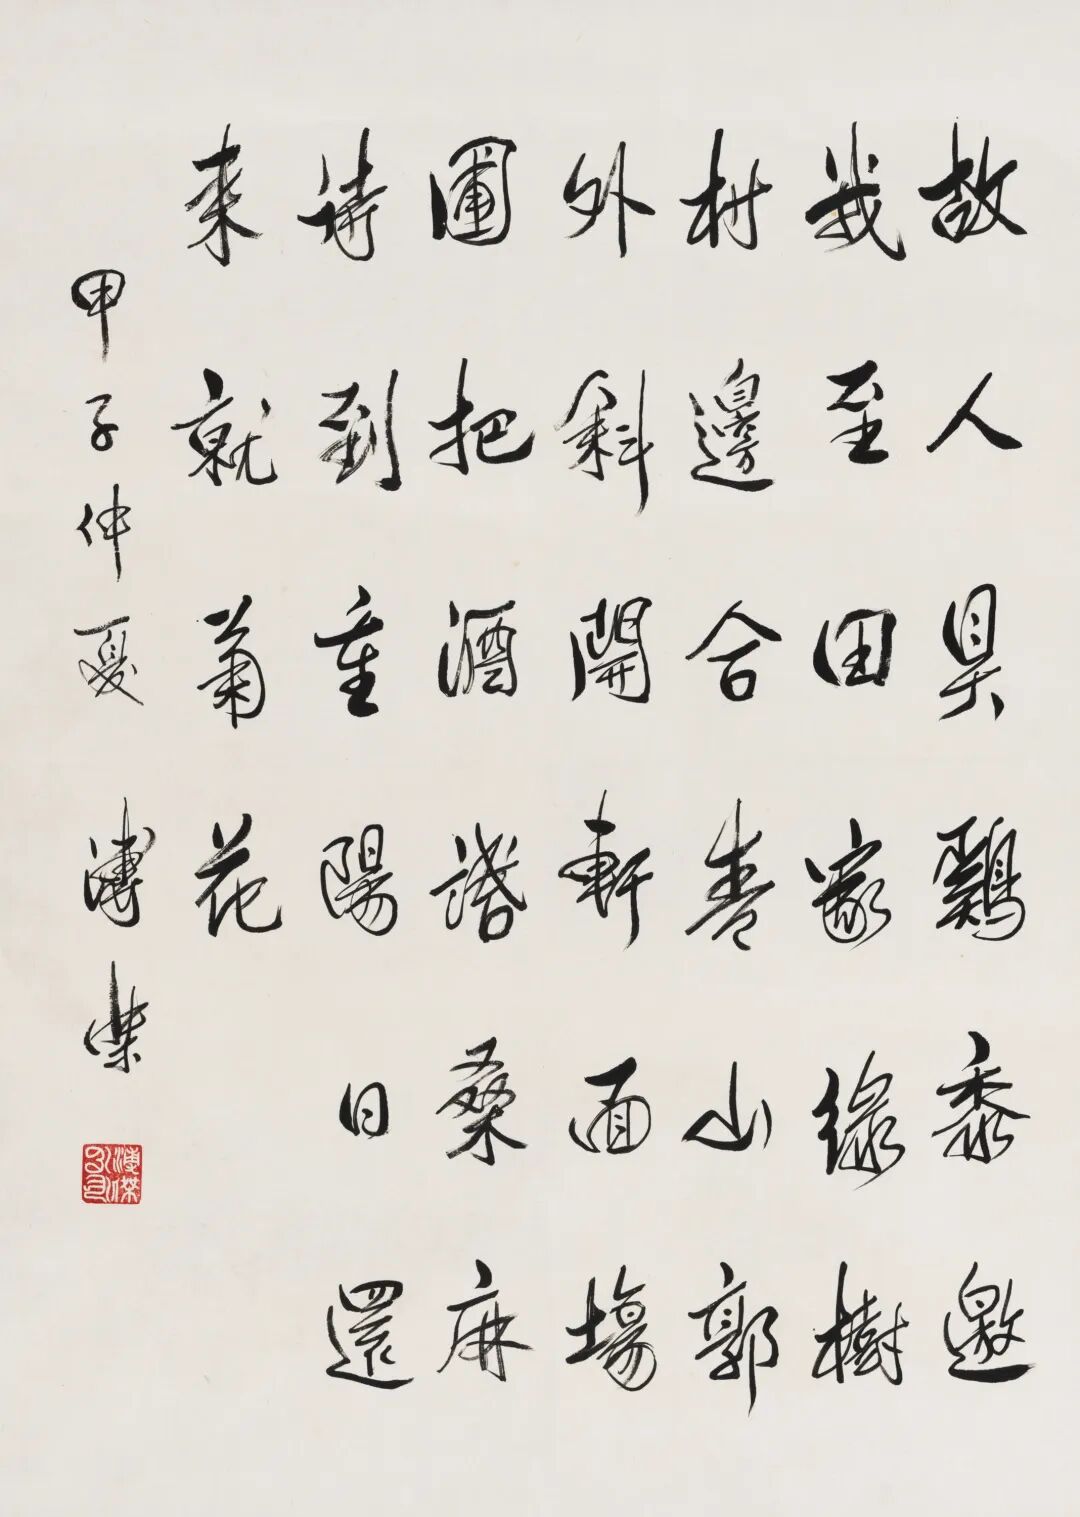 故人具鷄黍邀
我至田家綠樹
村邊合青山郭
外斜開軒面場
圃把酒話桑麻
待到重陽日還
來就菊花
甲子仲夏 溥傑
溥傑